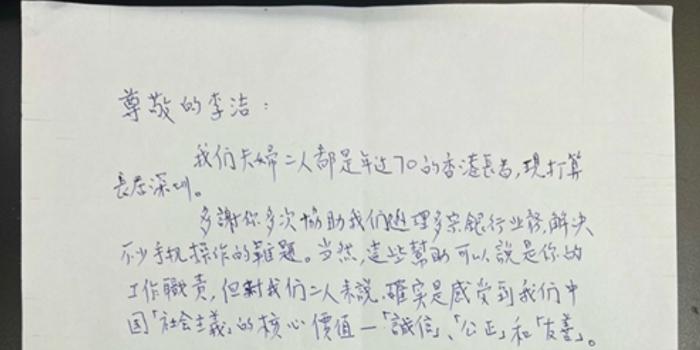 尊敬的李洁：
我们夫婦二人都是年过70的香港長者，現打算
長居深圳。
多謝你多次協助我们処理多宗銀行业務，解决
不少手机操作的難題。当然，這些幫助可以說是你的
工作職責，但對我们二人来説，確实是感受到我们中
国「社会主義」的核心價值—「誠信」、「公正」和「友善」。